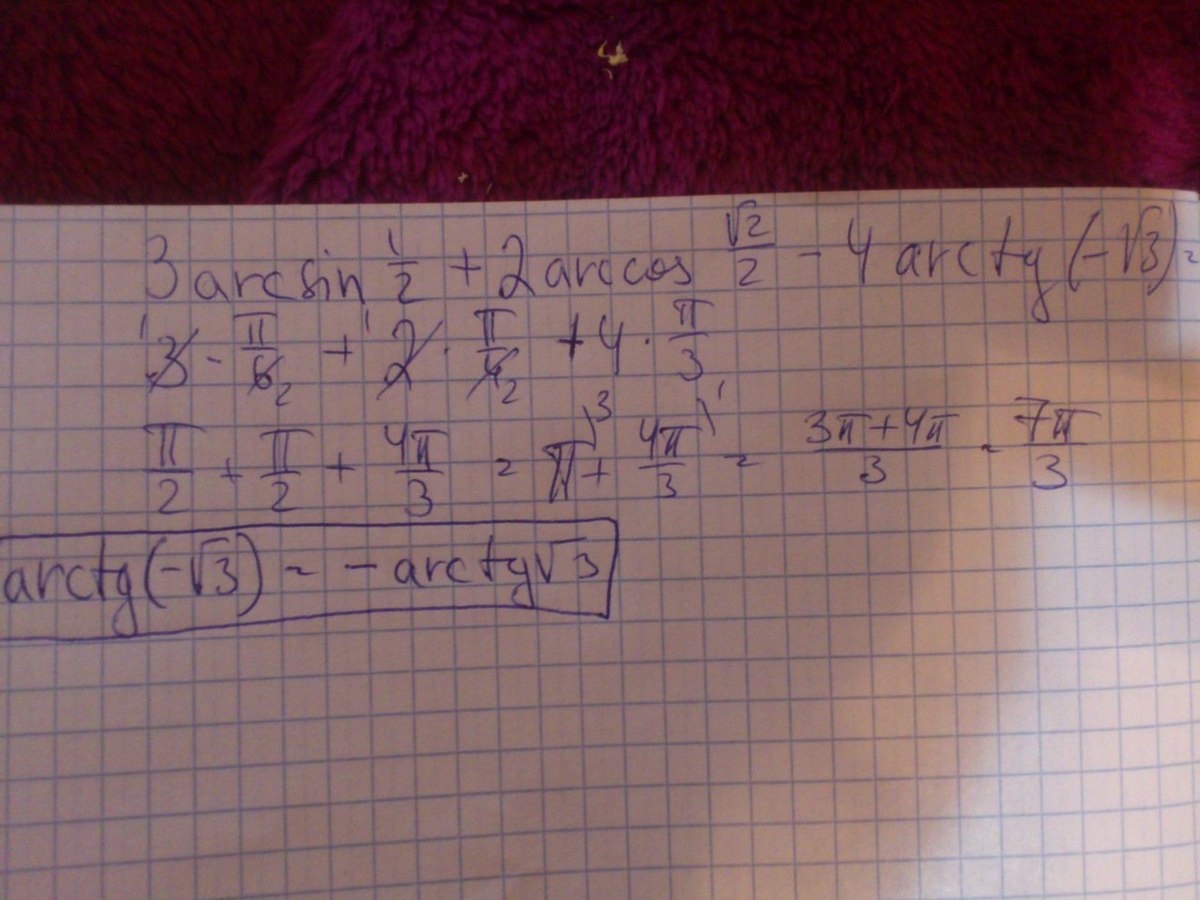 3 arcsin 1/2 + 2 arccos √2/2 - 4 arctg (-√3) =
¹3 · π/6₂ + ¹2 · π/4₂ + 4 · π/3
π/2 + π/2 + 4π/3 = π⁾³ + 4π/3⁾¹ = (3π+4π)/3 = 7π/3
arctg(-√3) = - arctg√3